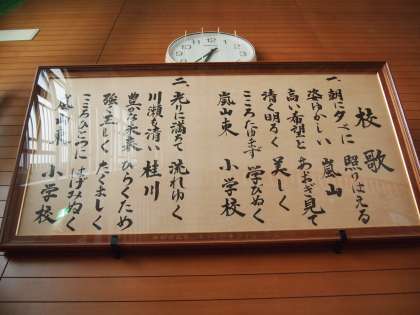 校歌
一、朝に夕べに 照りはえる
姿ゆかしい 嵐山
高い希望と あおぎ見て
清く明るく 美しく
こころたゆまず 学びぬく
嵐山東 小学校
二、光りに満ちて 流れゆく
川瀬も清い 桂川
豊かな未来 ひらくため
強く正しく たくましく
こころひとつに はげみぬく
嵐山東 小学校